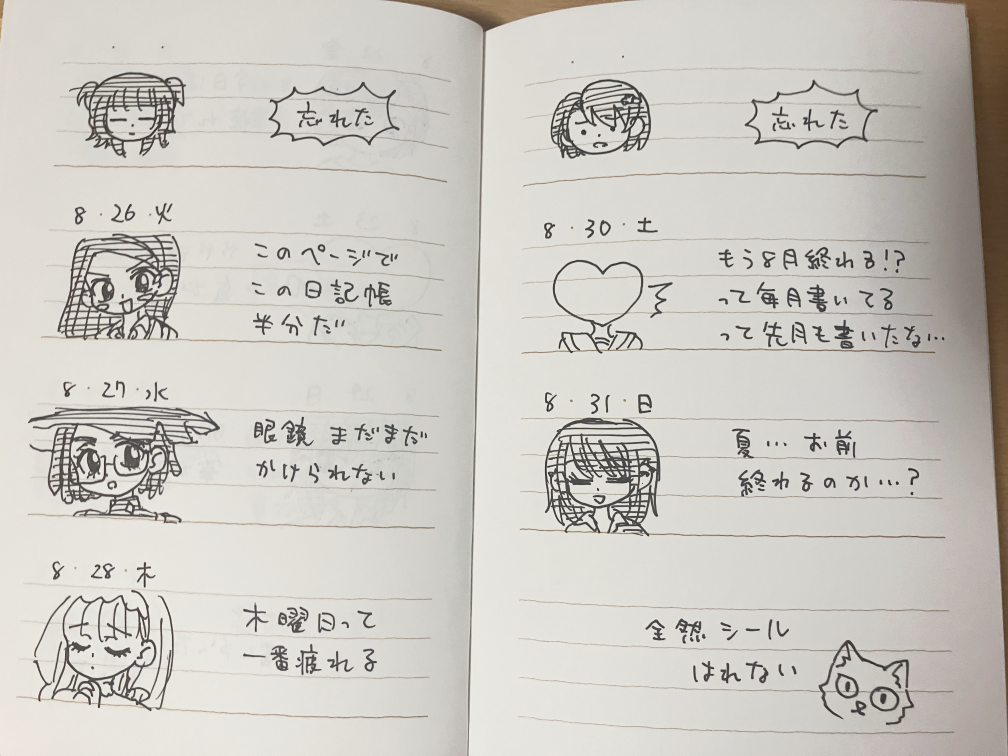 忘れた
8・26・火
このページで
この日記帳
半分だ
8・27・水
眼鏡 まだまだ
かけられない
8・28・木
木曜日って
一番疲れる
忘れた
8・30・土
もう8月終わる!?
って毎月書いてる
って先月も書いたな…
8・31・日
夏… お前
終わるのか…?
全然シール
はれない